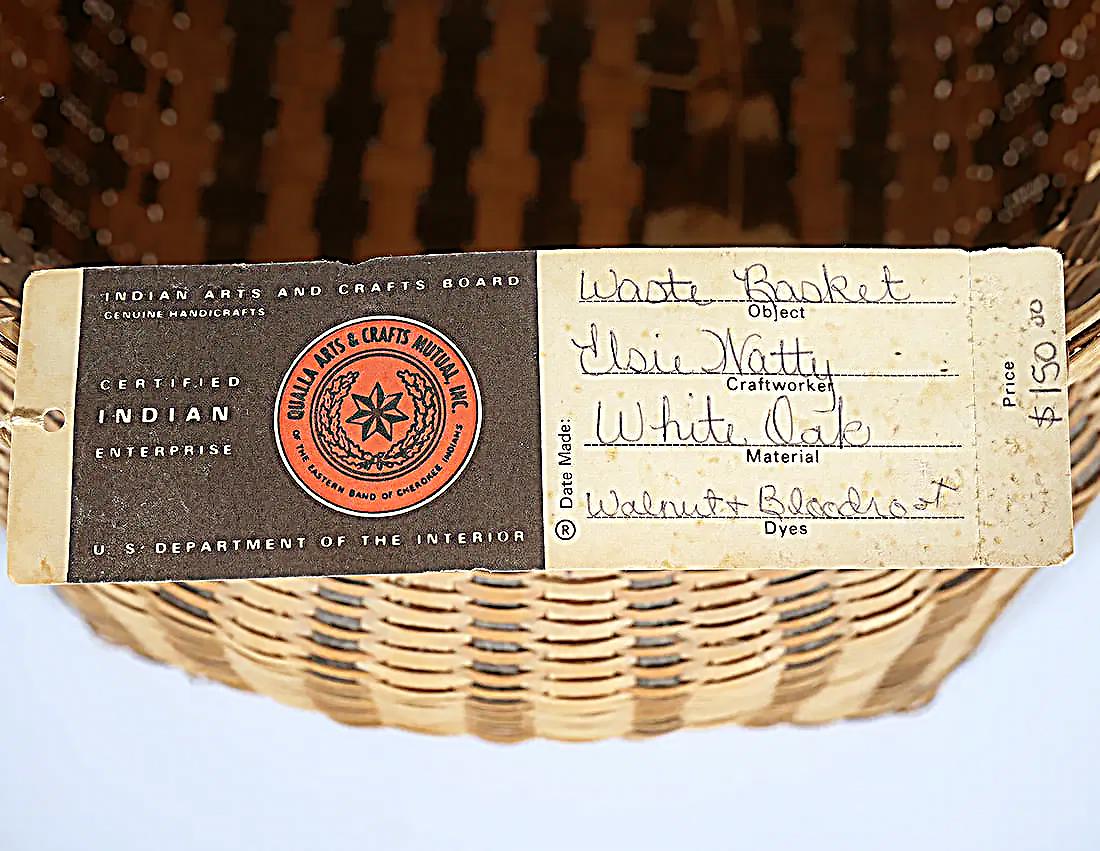 INDIAN ARTS AND CRAFTS BOARD
GENUINE HANDICRAFTS
CERTIFIED
INDIAN
ENTERPRISE
U. S. DEPARTMENT OF THE INTERIOR
QUALLA ARTS & CRAFTS MUTUAL, INC.
OF THE EASTERN BAND OF CHEROKEE INDIANS
Waste Basket
Object
Elsie Natty
Craftworker
White Oak
Material
Walnut + Bloodroot
Dyes
® Date Made:
Price
$150.00